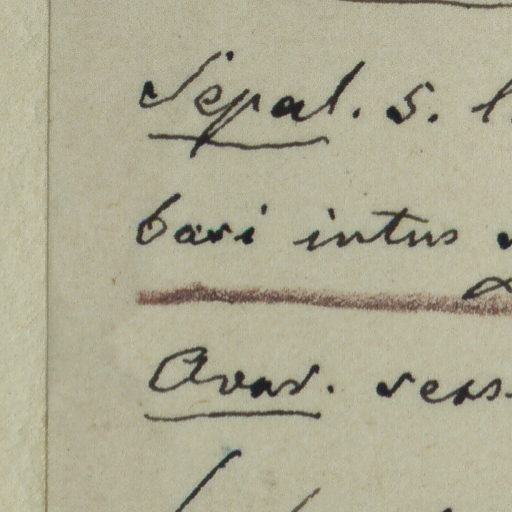 Sepal. 5. l
basi intus
Ovar. sess.